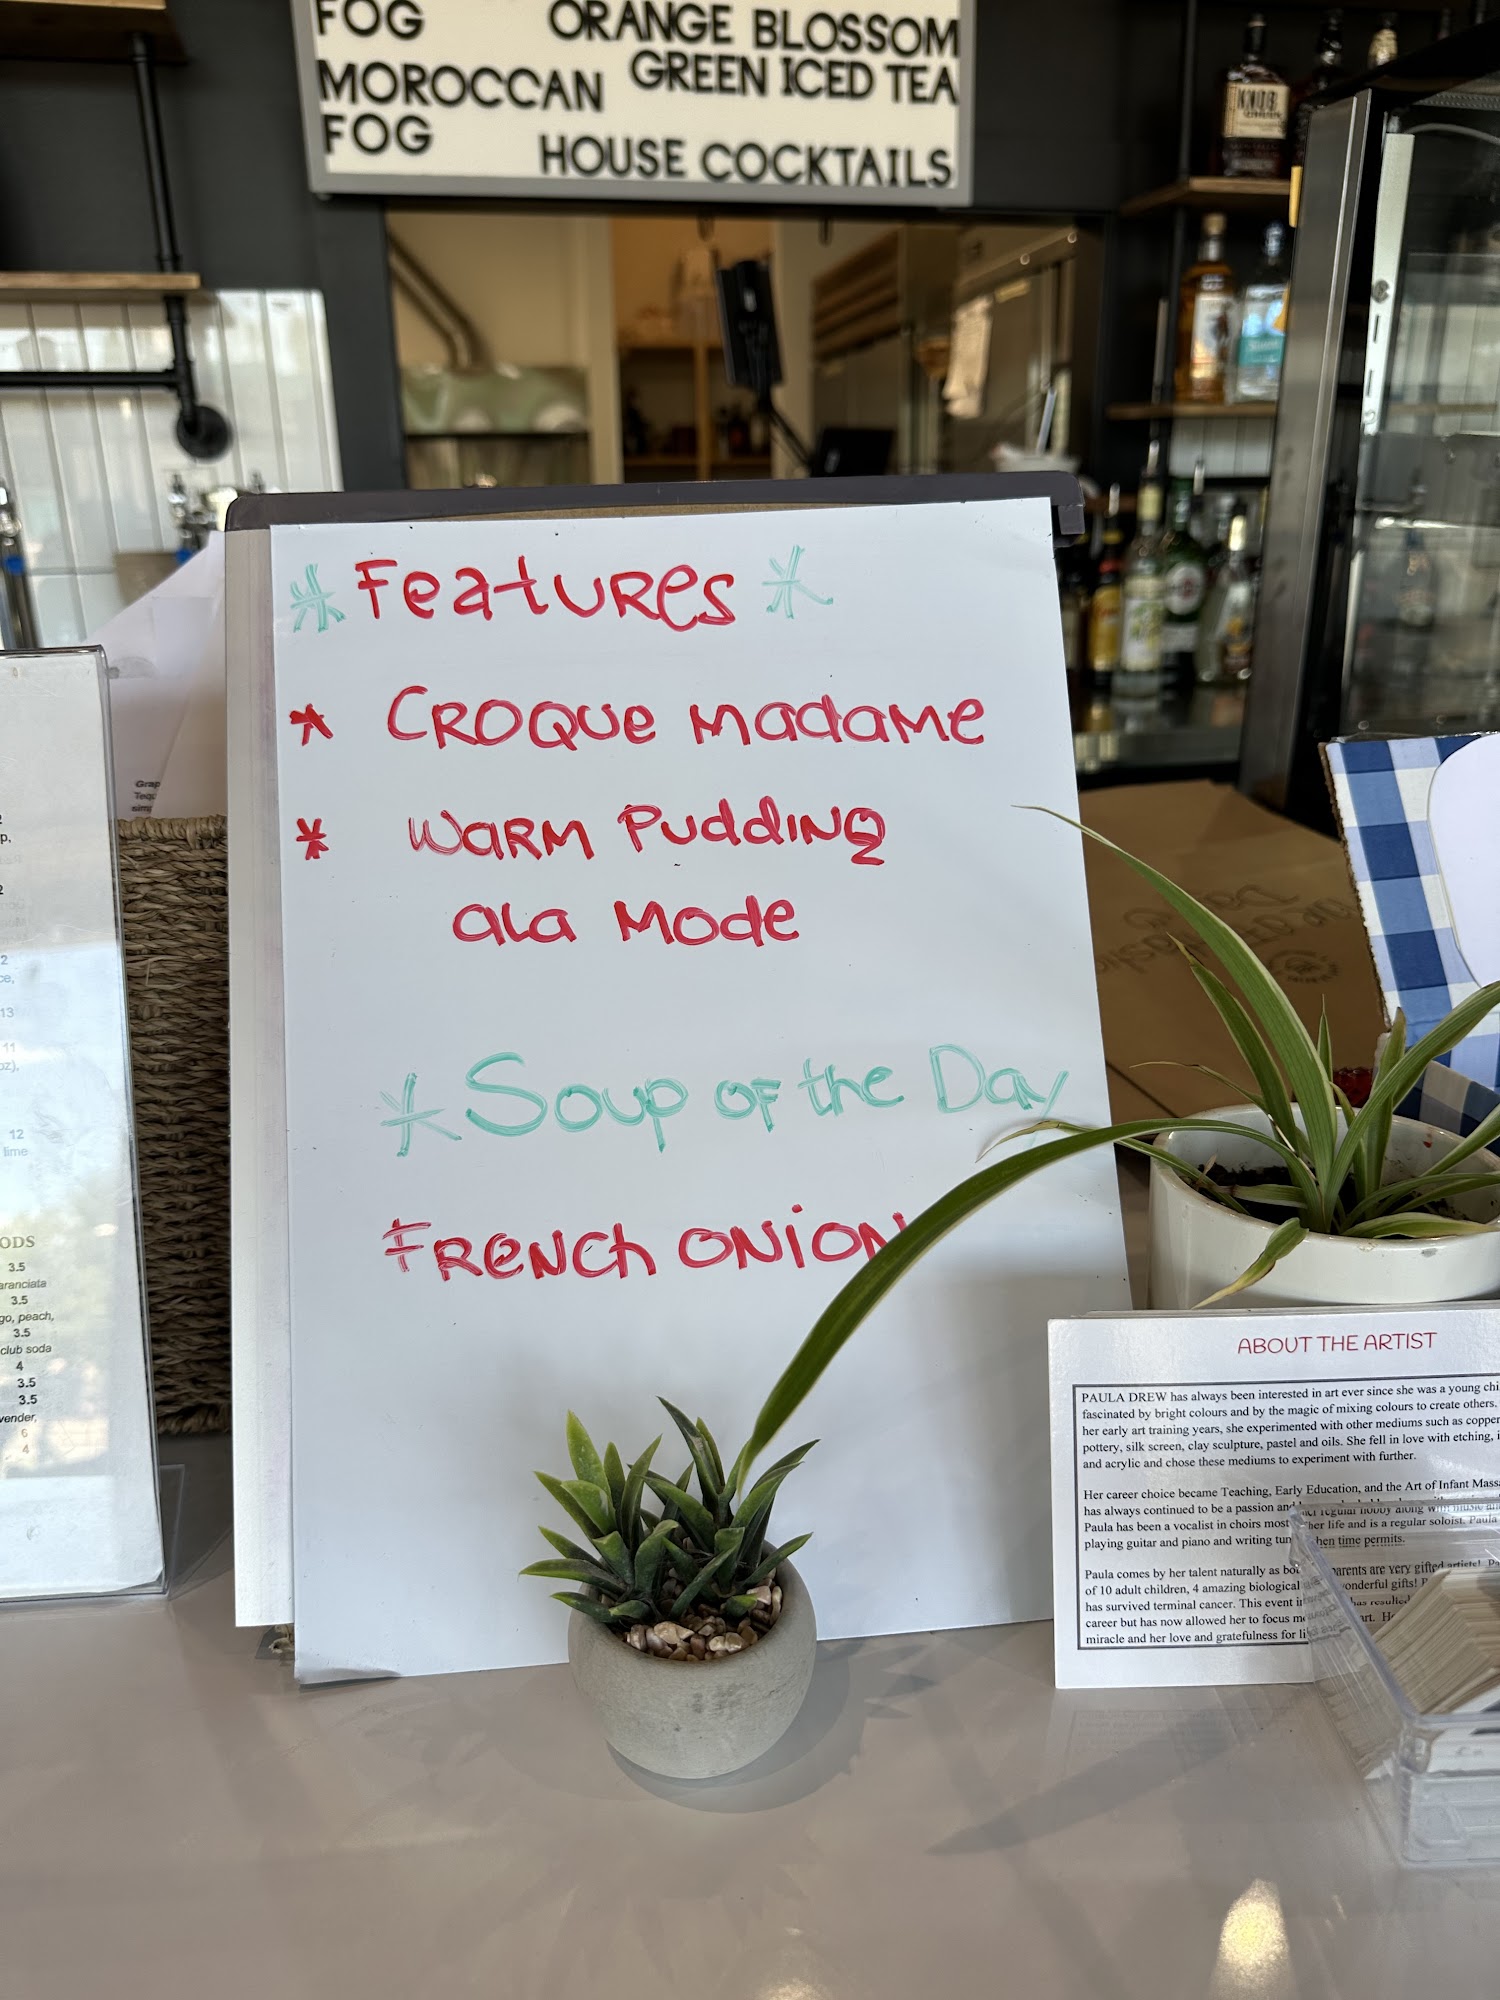 FOG
MOROCCAN
FOG
ORANGE BLOSSOM
GREEN ICED TEA
HOUSE COCKTAILS
KNOB
* Features *
* CROQUE MADAME
* WARM PUDDING
ALA MODE
* Soup of the Day
FRENCH ONION
Grap
Tequ
simp
2
p,
2
2
ce,
13
11
oz),
12
lime
ODS
3.5
aranciata
3.5
go, peach,
3.5
club soda
4
3.5
3.5
vender,
6
4
ABOUT THE ARTIST
PAULA DREW has always been interested in art ever since she was a young chi
fascinated by bright colours and by the magic of mixing colours to create others.
her early art training years, she experimented with other mediums such as copper
pottery, silk screen, clay sculpture, pastel and oils. She fell in love with etching, i
and acrylic and chose these mediums to experiment with further.
Her career choice became Teaching, Early Education, and the Art of Infant Mass
has always continued to be a passion and her regular hobby along with music an
Paula has been a vocalist in choirs most her life and is a regular soloist. Paula
playing guitar and piano and writing tun when time permits.
Paula comes by her talent naturally as bo parents are very gifted artists! Pa
of 10 adult children, 4 amazing biological wonderful gifts!
has survived terminal cancer. This event has resulted
career but has now allowed her to focus art.
miracle and her love and gratefulness for li